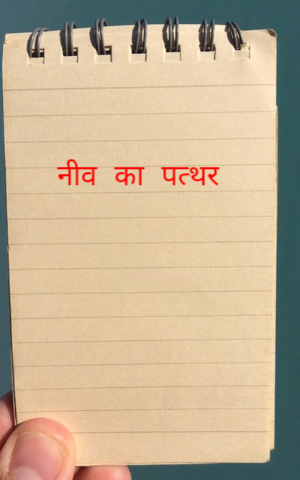 नीव का पत्थर